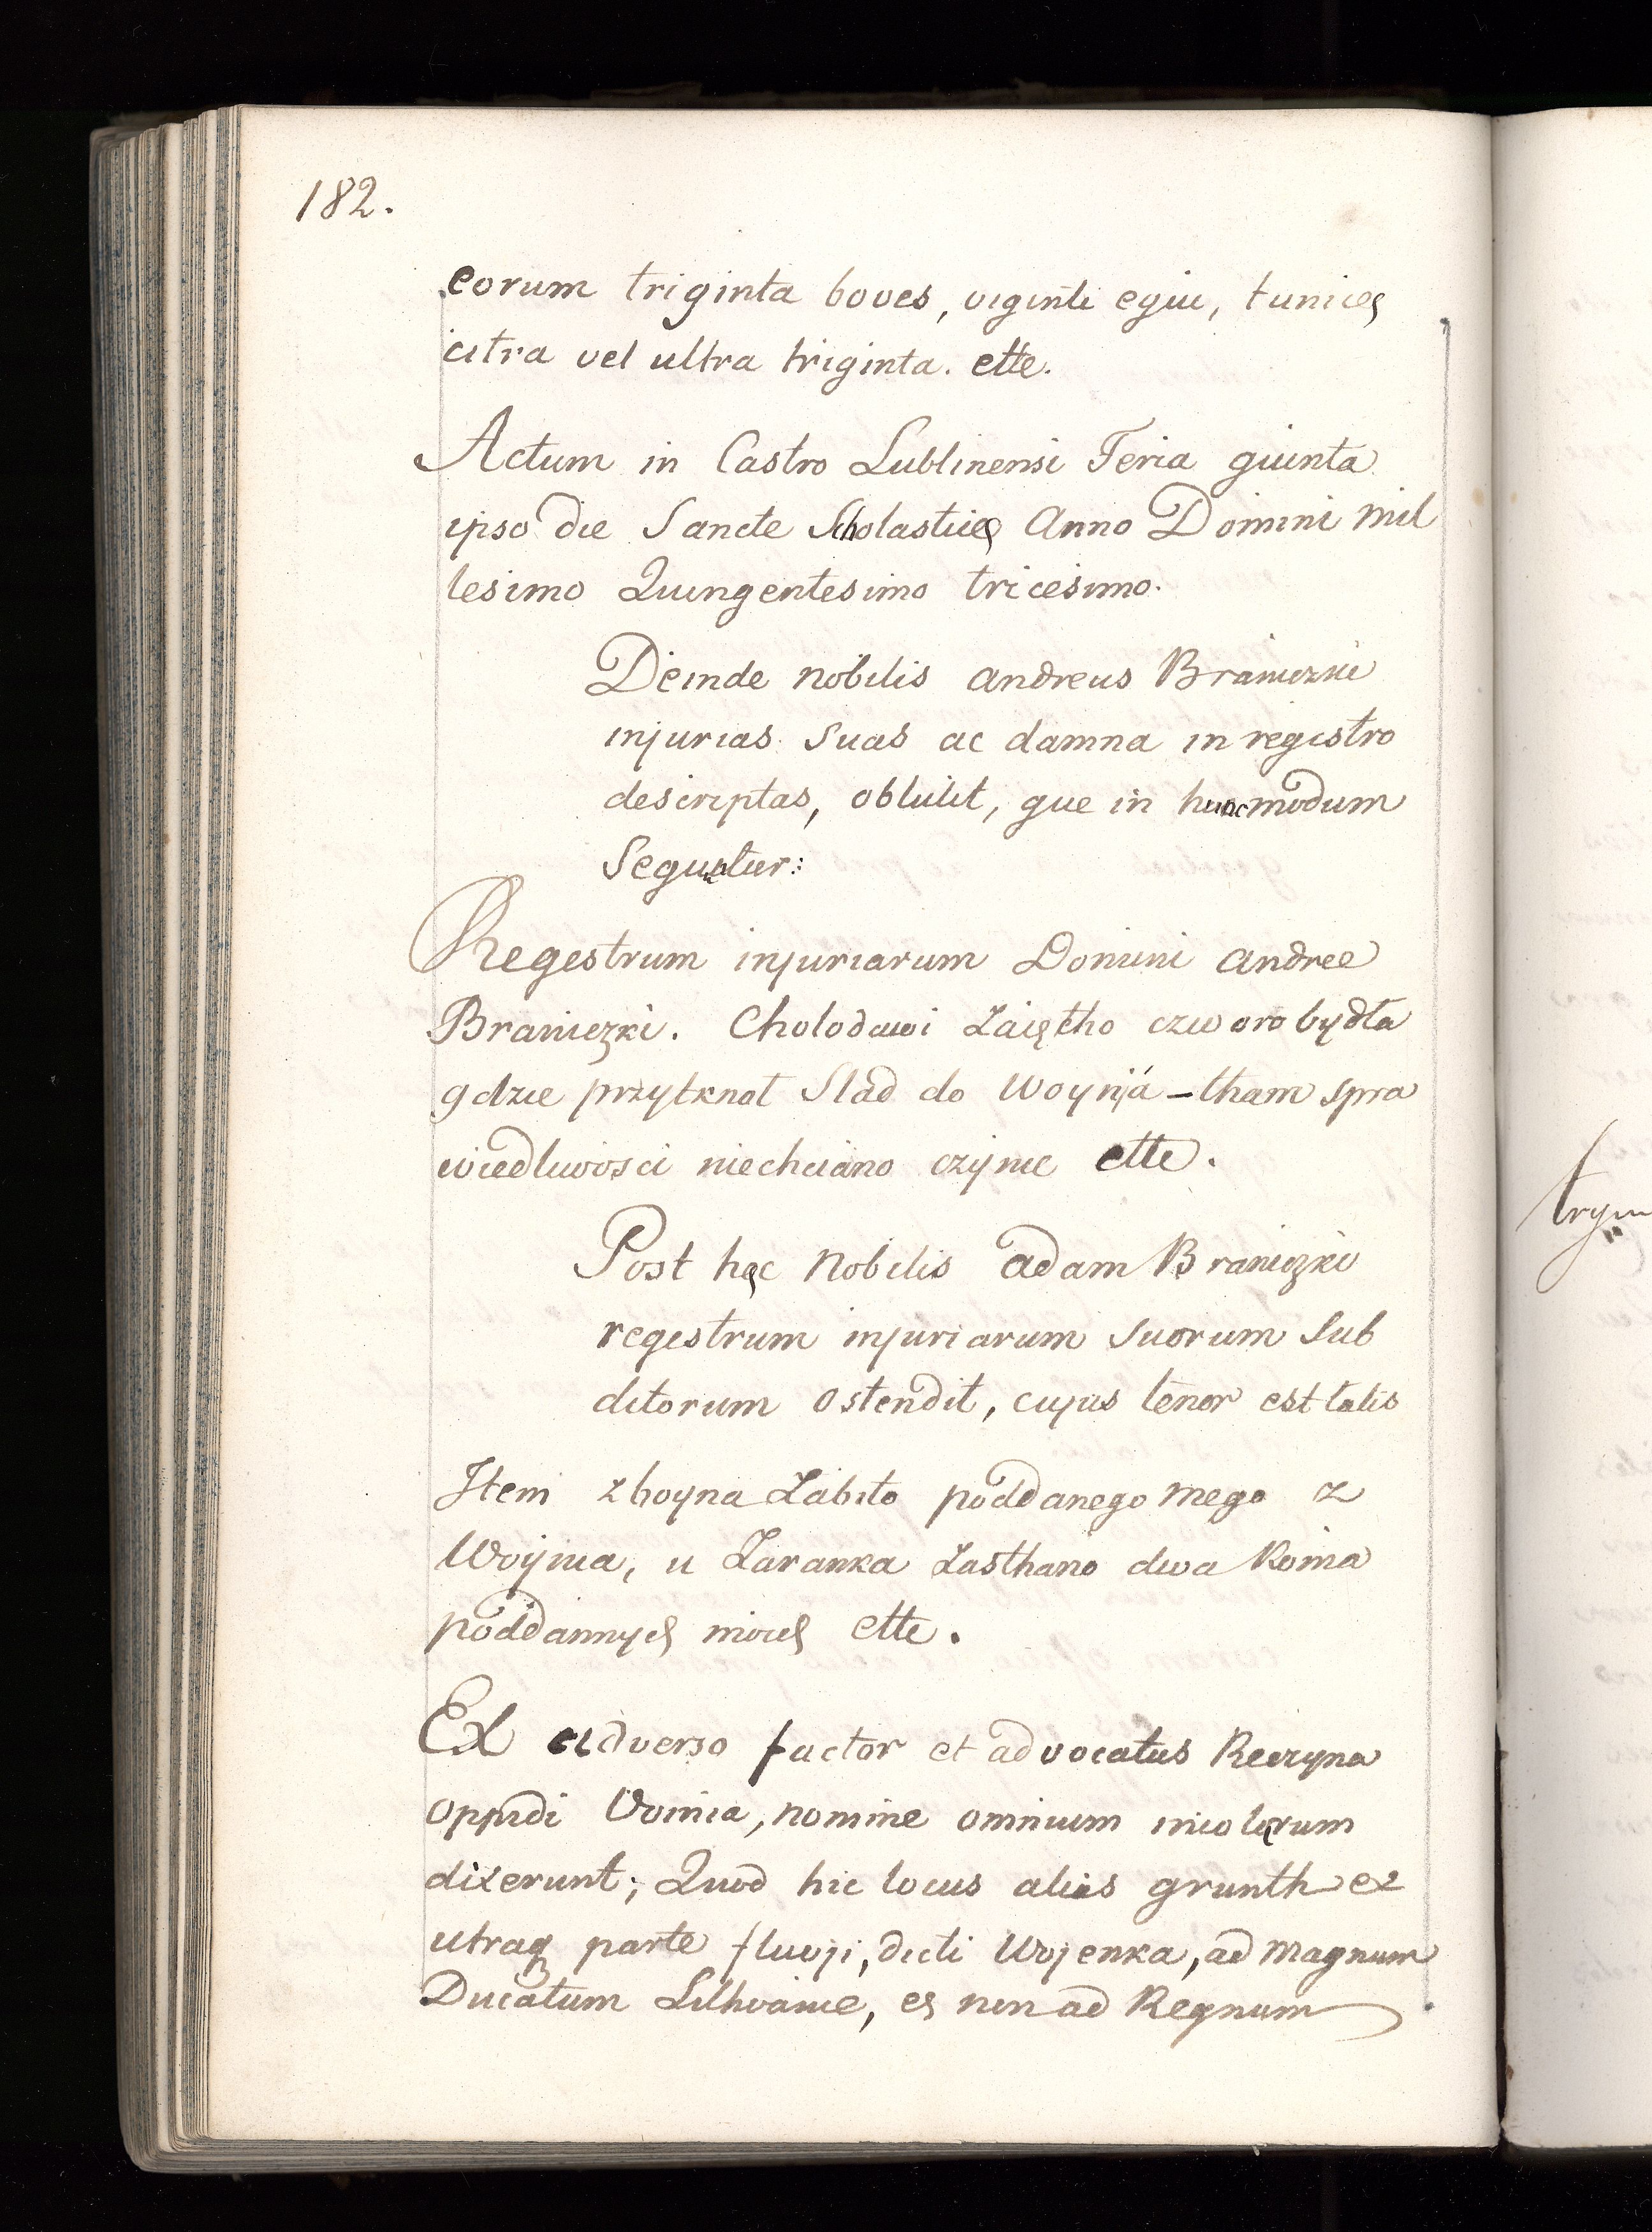 182.
eorum triginta boves, viginti egui, tunicę
citra vel ultra triginta. ette.
Actum in Castro Lublinensi Feria guinta
ipso die Sancte Scholasticę Anno Domini mil
lesimo Quingentesimo tricesimo.
Deinde nobilis Andreus Braniczki
injurias suas ac damna in registro
descriptas, obtulit, gue in hunc modum
Seguntur:
Regestrum injuriarum Domini Andree
Braniczki. Cholodawi Zaiętho czworo bydła
gdzie przytknol Slad do Woynia – tham spra
wiedliwosci niechciano czynie ette.
Post hęc Nobilis Adam Braniczki
regestrum injuriarum suorum Sub
ditorum ostendit, cujus tenor est talis
Item zboyna Zabito poddanego mego z
Woynia, u Zaranka Zasthano dwa Konia
poddannych moich ette.
Ex adverso factor et advocatus Reczyna
oppidi Voinia, nomine omnium incolęrum
dixerunt; Quod hic locus alias grunth ex
utraq parte fluvji, dicti Wojenka, ad Magnum
Ducatum Lithvanie, es non ad Regnum